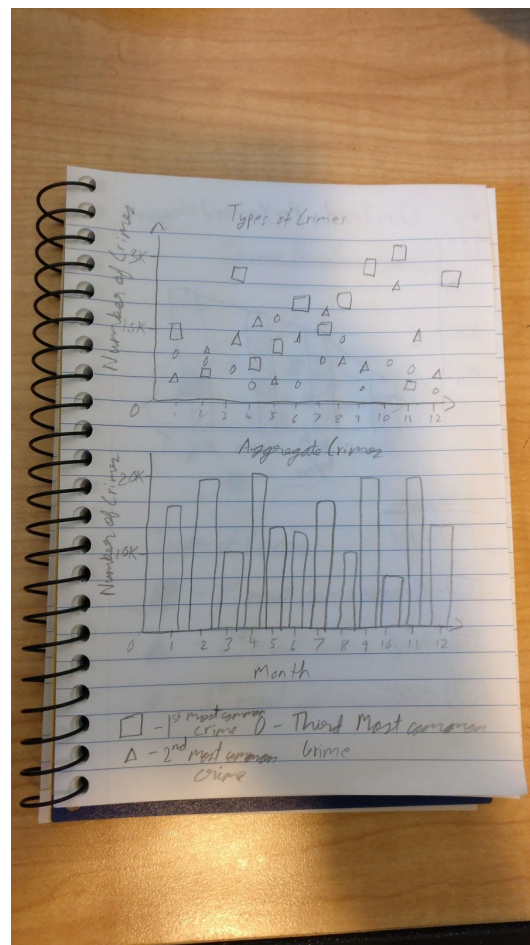 Types of Crimes
Number of Crimes
3K
1.5K
0
1 2 3 4 5 6 7 8 9 10 11 12
Aggregate Crimes
Number of Crimes
20K
10K
0
1 2 3 4 5 6 7 8 9 10 11 12
Month
□ - 1st most common crime
O - Third Most common Crime
△ - 2nd most common crime